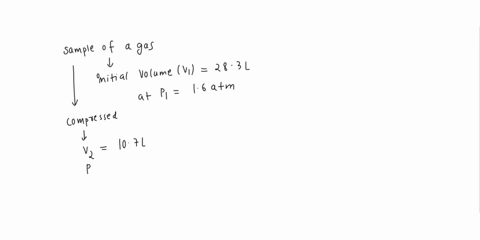 sample of a gas
initial volume (V₁) = 28.3 L
at P₁ = 1.6 atm
compressed
V₂ = 10.7 L
P